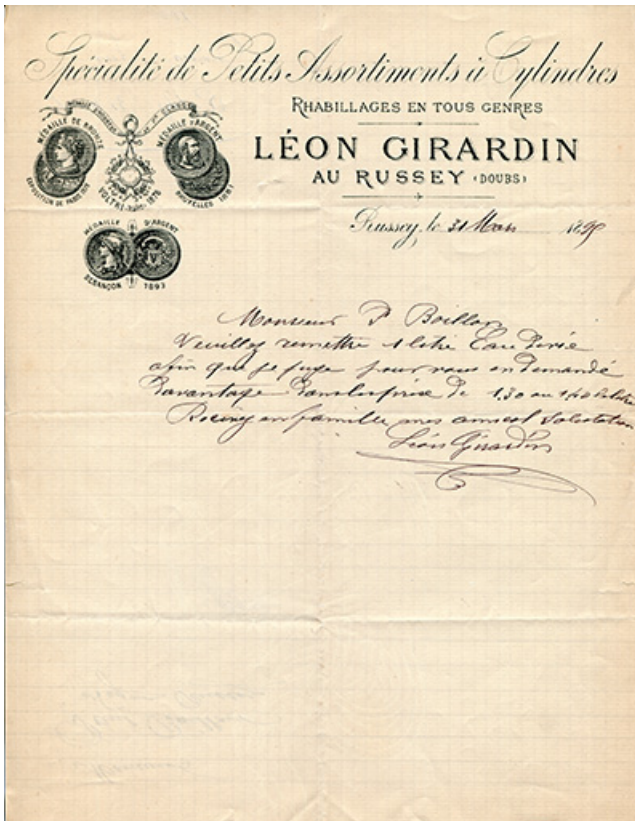 Spécialité de Petits Assortiments à Cylindres
RHABILLAGES EN TOUS GENRES
LÉON GIRARDIN
AU RUSSEY (DOUBS)
MÉDAILLE DE BRONZE
EXPOSITION DE PARIS
VOLTRI 1876
MÉDAILLE D'ARGENT
BRUXELLES
MÉDAILLE D'ARGENT
BESANÇON 1893
Russey, le 31 Mars 1895
Monsieur P Boillon
Veuillez remettre 1 litre Eau
afin que je puge pour vous en demandé
Davantage prix de 1,30 ou 1,40 le litre
en famille mes amical Salutation
Léon Girardin